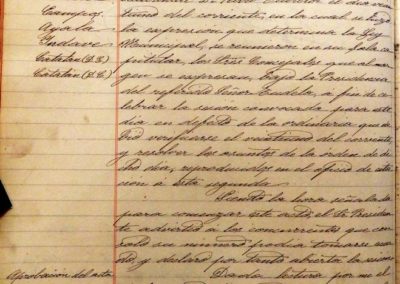 Campos
Ayala
Indave
Catalán (D. E.)
Catalán (D. C.)
tiuno del corriente, en la cual se hizo
la expresion que determina la Ley
Municipal, se reunieron en su Sala ca-
pitular, los Sres Concejales que al mar-
gen se expresan, bajo la Presidencia
del referido Señor Eudeta, a fin de ce-
lebrar la sesion convocada para este
dia en defecto de la ordinaria que de-
bió verificarse el veintiuno del corriente,
y resolver los asuntos de la órden de di-
cho dia, reproducidos en el oficio de cita-
cion á esta segunda.
Siendo la hora señalada
para comenzar este acto, el Sr Presiden-
te advirtió a los concurrentes que con
solo su número podia tomarse acuer-
do, y declaró por tanto abierta la sesion
Aprobacion del acta
Dada lectura por mi el